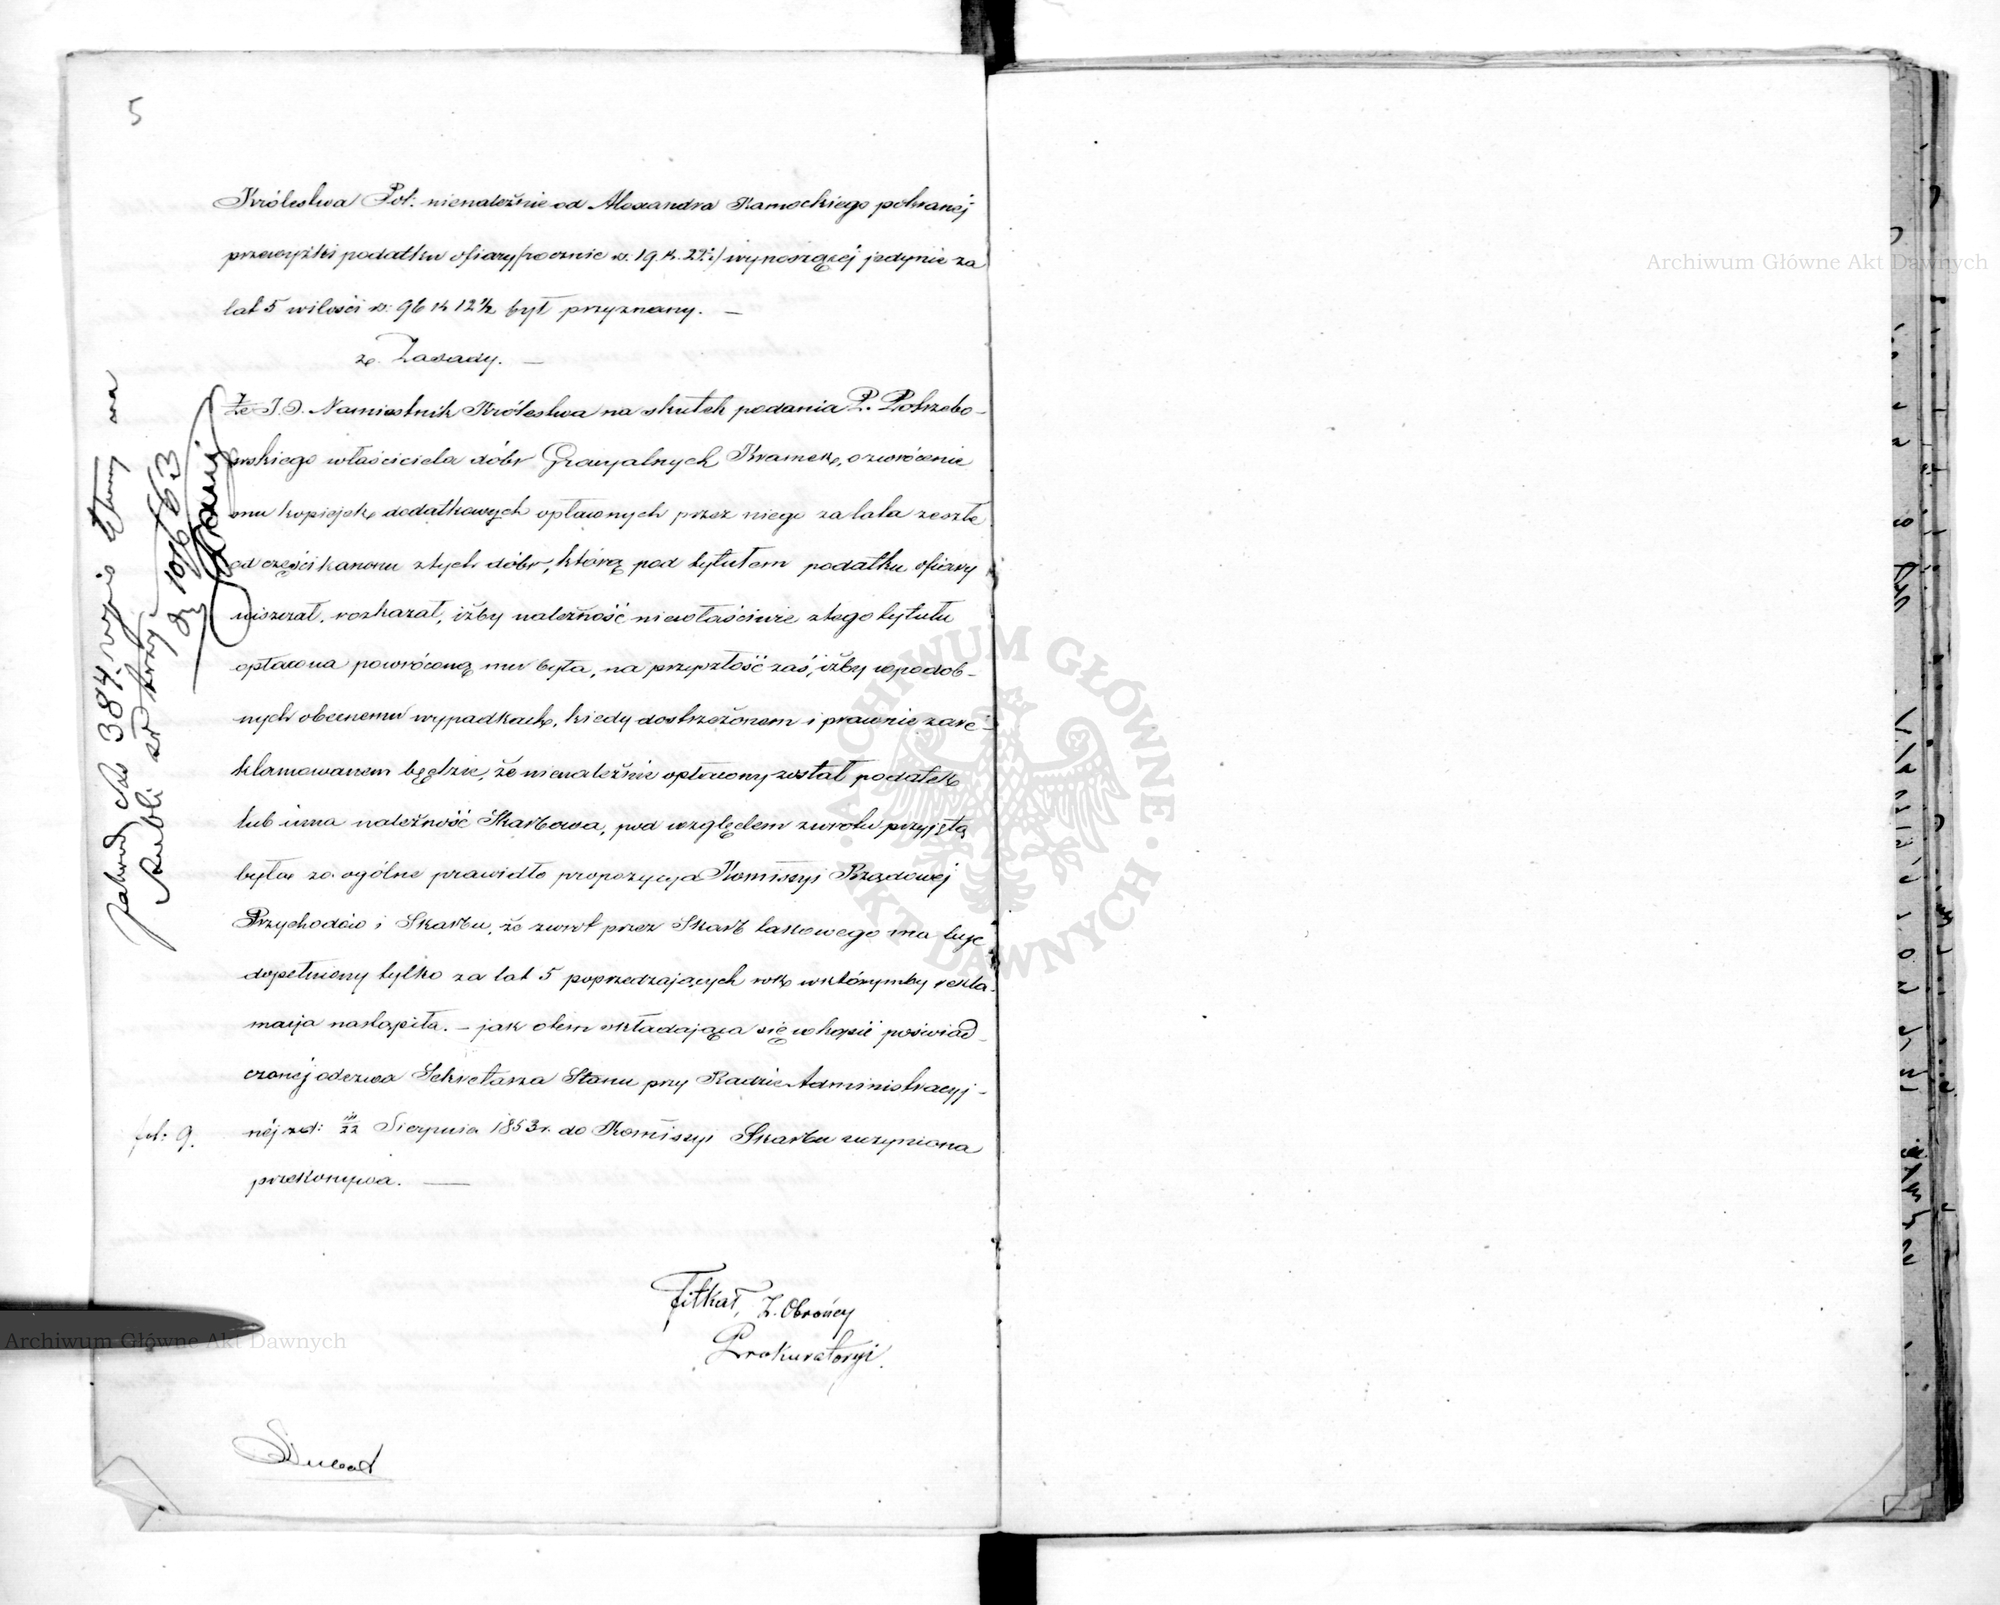 5
Królestwa Pol: nienależnie od Alexandra Kamockiego pobranej
przewyżki podatku ofiary /rocznie rs. 19 k. 22½/ wynoszącej jedynie za
lat 5 wilości rs: 96 k 12½ był przyznany. —
z Zasady. —
Że J. O. Namiestnik Królestwa na skutek podania P. Potrzebo-
wskiego właściciela dóbr Gracyalnych Kramek, o zwrócenie
mu kopiejek dodatkowych opłaconych przez niego za lata zeszłe
od części kanonu z tych dóbr, którą pod tytułem podatku ofiary
uiszczał, rozkazał, iżby należność niewłaściwie z tego tytułu
opłacona powróconą mu była, na przyszłość zaś, iżby w podob-
nych obecnemu wypadkach, kiedy dostrzeżonem i prawnie zare-
klamowanem będzie, że nienależnie opłacony został podatek
lub inna należność Skarbowa, pod względem zwrotu przyjętą
była za ogólne prawidło propozycya Komissyi Rządowej
Przychodów i Skarbu, że zwrot przez Skarb takowego ma być
dopełniony tylko za lat 5 poprzedzających rok w którymby rekla-
macya nastąpiła. — jak o tem składająca się w kopii poświad-
czonej odezwa Sekretarza Stanu przy Radzie Administracyj-
nej zd: 10/22 Sierpnia 1853 r. do Komissyi Skarbu uczyniona
przekonywa. —
fol: 9.
Z. Obrońcy
Prokuratoryi.
No 384
rubli sr. trzy
d. 10/6 863
Archiwum Główne Akt Dawnych
Archiwum Główne Akt Dawnych
ARCHIWUM GŁÓWNE · AKT DAWNYCH ·